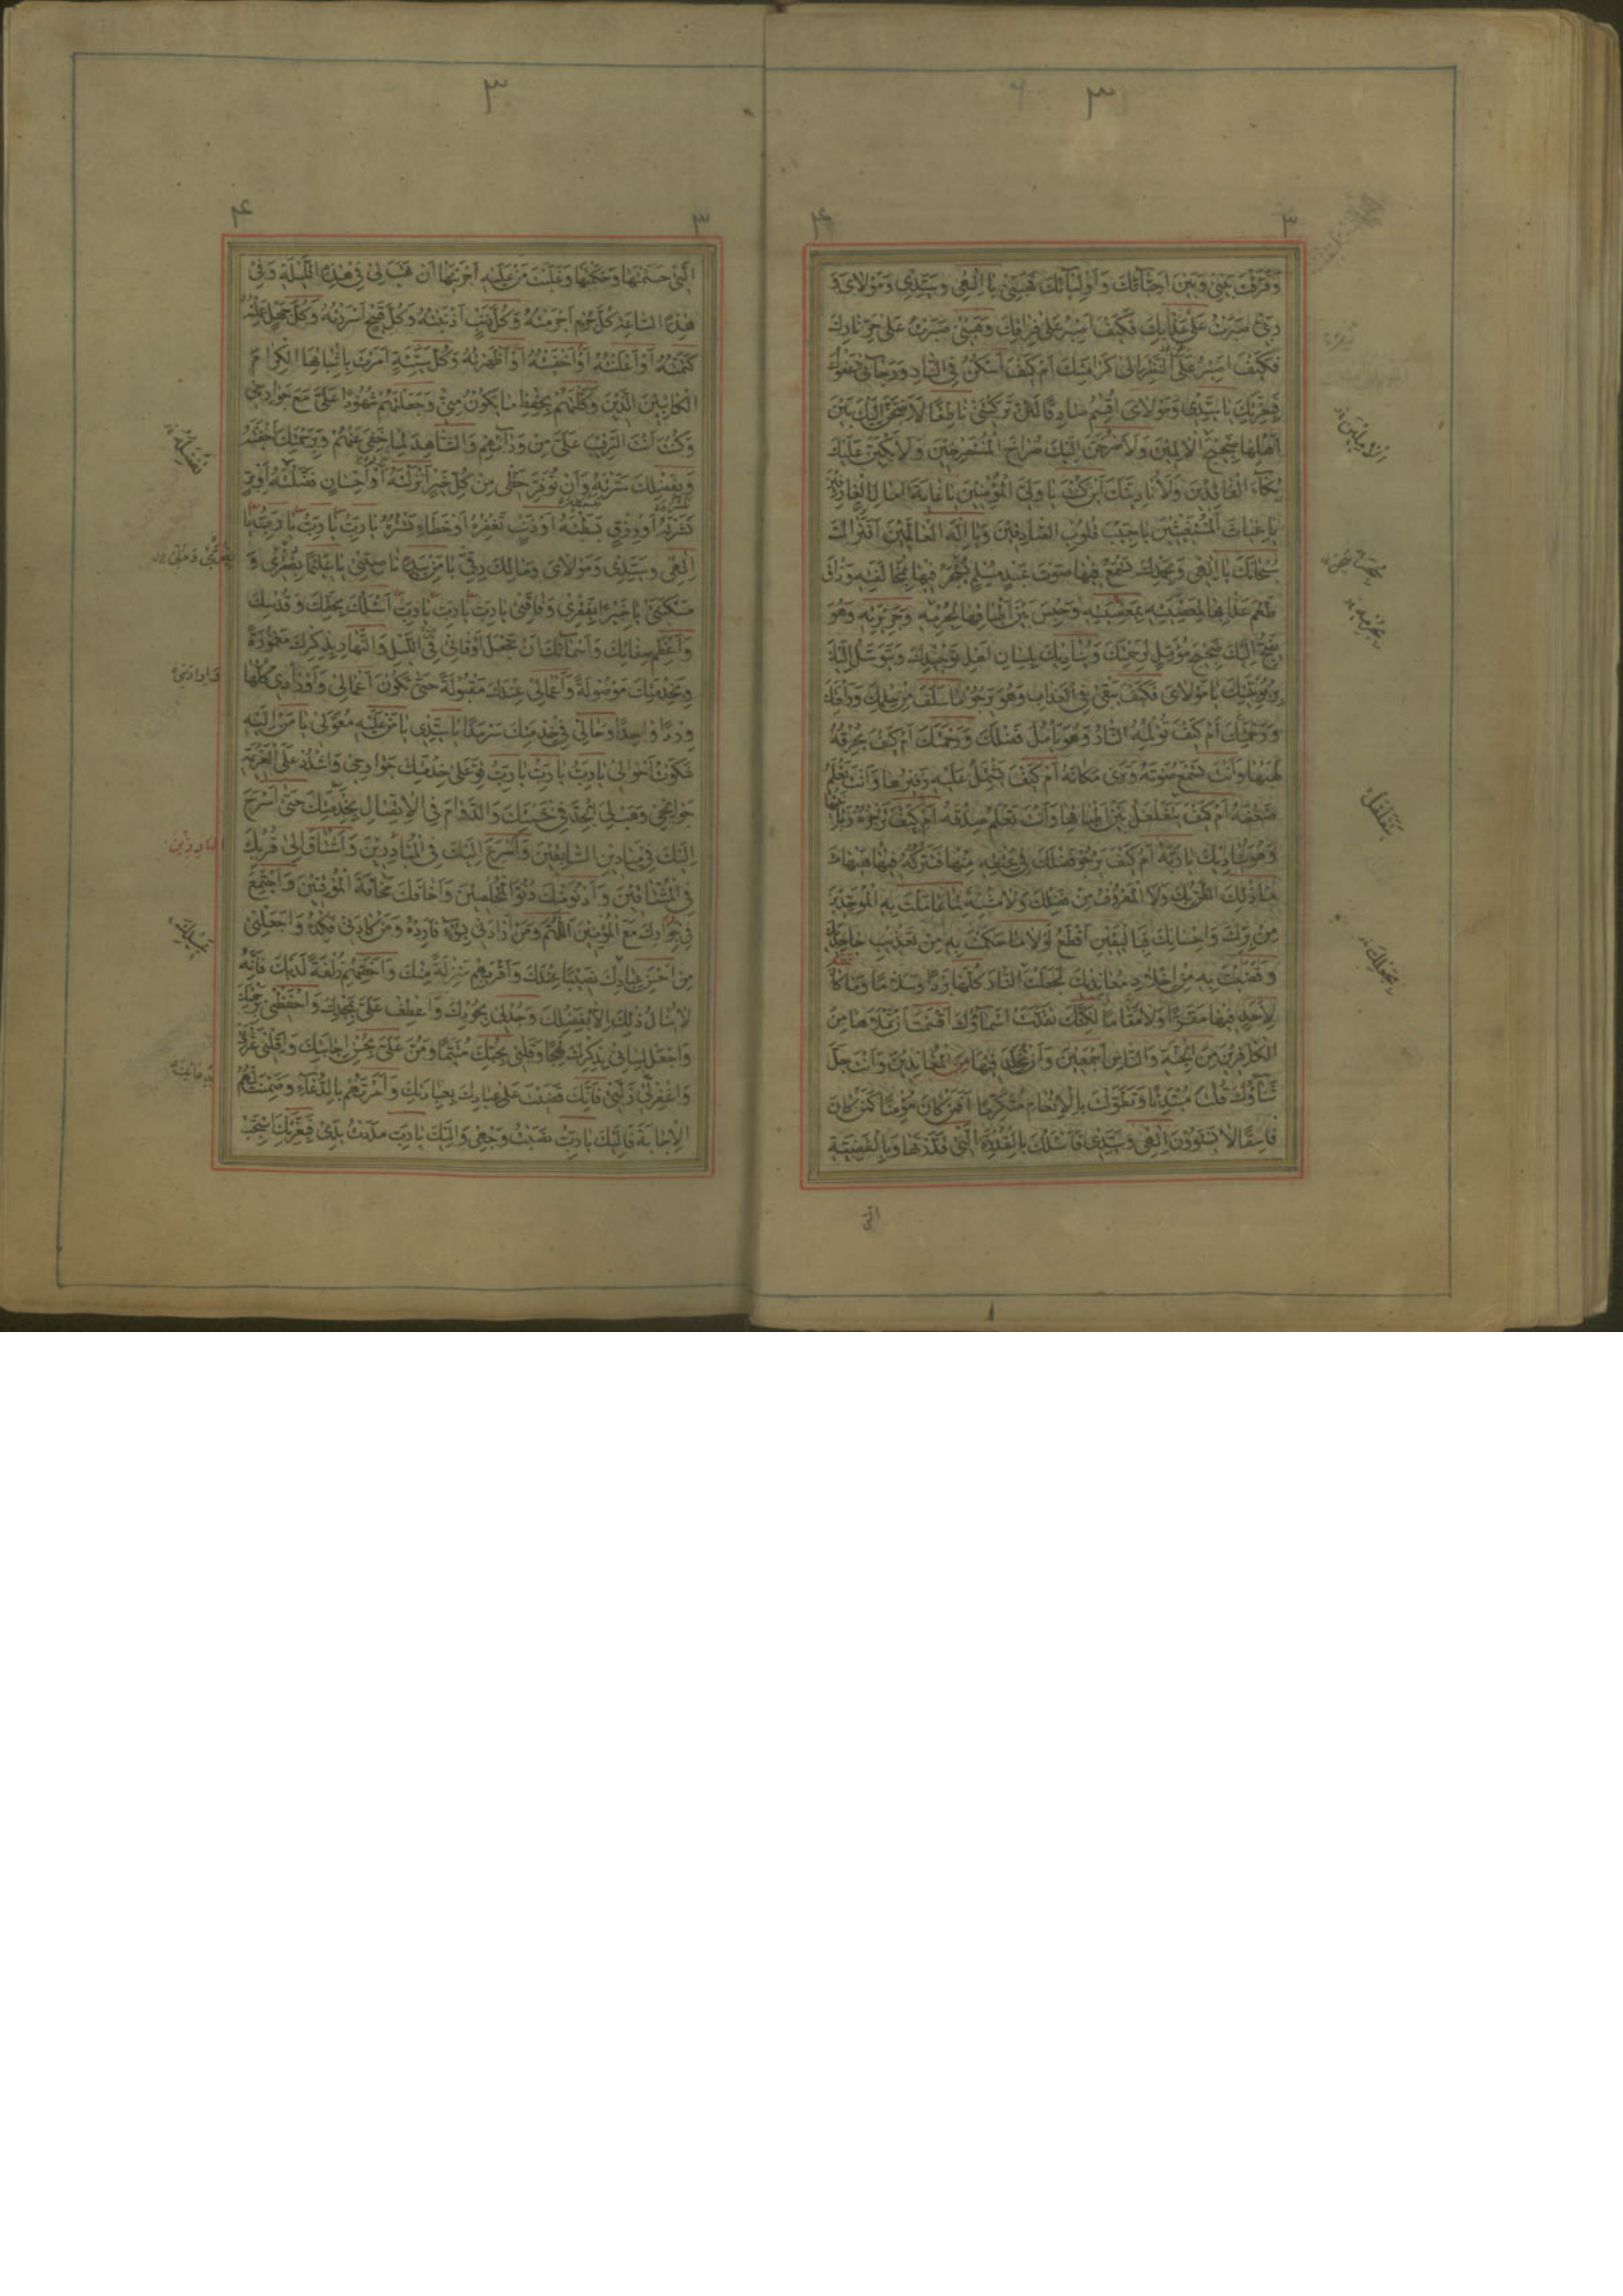 ٣
٣ ۴
وَفَرَّقْتَ بَيْنِي وَبَيْنَ اَحِبَّائِكَ وَاَوْلِيَائِكَ فَهَبْنِي يَا اِلٰهِي وَسَيِّدِي وَمَوْلَايَ وَ
رَبِّي صَبَرْتُ عَلٰى عَذَابِكَ فَكَيْفَ اَصْبِرُ عَلٰى فِرَاقِكَ وَهَبْنِي صَبَرْتُ عَلٰى حَرِّ نَارِكَ
فَكَيْفَ اَصْبِرُ عَنِ النَّظَرِ اِلٰى كَرَامَتِكَ اَمْ كَيْفَ اَسْكُنُ فِي النَّارِ وَرَجَائِي عَفْوُكَ
فَبِعِزَّتِكَ يَا سَيِّدِي وَمَوْلَايَ اُقْسِمُ صَادِقًا لَئِنْ تَرَكْتَنِي نَاطِقًا لَاَضِجَّنَّ اِلَيْكَ بَيْنَ
اَهْلِهَا ضَجِيجَ الْاٰمِلِينَ وَلَاَصْرُخَنَّ اِلَيْكَ صُرَاخَ الْمُسْتَصْرِخِينَ وَلَاَبْكِيَنَّ عَلَيْكَ
بُكَاءَ الْفَاقِدِينَ وَلَاُنَادِيَنَّكَ اَيْنَ كُنْتَ يَا وَلِيَّ الْمُؤْمِنِينَ يَا غَايَةَ اٰمَالِ الْعَارِفِينَ
يَا غِيَاثَ الْمُسْتَغِيثِينَ يَا حَبِيبَ قُلُوبِ الصَّادِقِينَ وَيَا اِلٰهَ الْعَالَمِينَ اَفَتُرَاكَ
سُبْحَانَكَ يَا اِلٰهِي وَبِحَمْدِكَ تَسْمَعُ فِيهَا صَوْتَ عَبْدٍ مُسْلِمٍ سُجِنَ فِيهَا بِمُخَالَفَتِهِ وَذَاقَ
طَعْمَ عَذَابِهَا بِمَعْصِيَتِهِ وَحُبِسَ بَيْنَ اَطْبَاقِهَا بِجُرْمِهِ وَجَرِيرَتِهِ وَهُوَ
يَضِجُّ اِلَيْكَ ضَجِيجَ مُؤَمِّلٍ لِرَحْمَتِكَ وَيُنَادِيكَ بِلِسَانِ اَهْلِ تَوْحِيدِكَ وَيَتَوَسَّلُ اِلَيْكَ
بِرُبُوبِيَّتِكَ يَا مَوْلَايَ فَكَيْفَ يَبْقٰى فِي الْعَذَابِ وَهُوَ يَرْجُو مَا سَلَفَ مِنْ حِلْمِكَ وَرَأْفَتِكَ
وَرَحْمَتِكَ اَمْ كَيْفَ تُؤْلِمُهُ النَّارُ وَهُوَ يَأْمُلُ فَضْلَكَ وَرَحْمَتَكَ اَمْ كَيْفَ يُحْرِقُهُ
لَهِيبُهَا وَاَنْتَ تَسْمَعُ صَوْتَهُ وَتَرٰى مَكَانَهُ اَمْ كَيْفَ يَشْتَمِلُ عَلَيْهِ زَفِيرُهَا وَاَنْتَ تَعْلَمُ
ضَعْفَهُ اَمْ كَيْفَ يَتَقَلْقَلُ بَيْنَ اَطْبَاقِهَا وَاَنْتَ تَعْلَمُ صِدْقَهُ اَمْ كَيْفَ تَزْجُرُهُ زَبَانِيَتُهَا
وَهُوَ يُنَادِيكَ يَا رَبَّهُ اَمْ كَيْفَ يَرْجُو فَضْلَكَ فِي عِتْقِهِ مِنْهَا فَتَتْرُكُهُ فِيهَا هَيْهَاتَ
مَا ذٰلِكَ الظَّنُّ بِكَ وَلَا الْمَعْرُوفُ مِنْ فَضْلِكَ وَلَا مُشْبِهٌ لِمَا عَامَلْتَ بِهِ الْمُوَحِّدِينَ
مِنْ بِرِّكَ وَاِحْسَانِكَ فَبِالْيَقِينِ اَقْطَعُ لَوْلَا مَا حَكَمْتَ بِهِ مِنْ تَعْذِيبِ جَاحِدِيكَ
وَقَضَيْتَ بِهِ مِنْ اِخْلَادِ مُعَانِدِيكَ لَجَعَلْتَ النَّارَ كُلَّهَا بَرْدًا وَسَلَامًا وَمَا كَانَ
لِاَحَدٍ فِيهَا مَقَرًّا وَلَا مُقَامًا لٰكِنَّكَ تَقَدَّسَتْ اَسْمَاؤُكَ اَقْسَمْتَ اَنْ تَمْلَاَهَا مِنَ
الْكَافِرِينَ مِنَ الْجِنَّةِ وَالنَّاسِ اَجْمَعِينَ وَاَنْ تُخَلِّدَ فِيهَا مِنَ الْمُعَانِدِينَ وَاَنْتَ جَلَّ
ثَنَاؤُكَ قُلْتَ مُبْتَدِئًا وَتَطَوَّلْتَ بِالْاِنْعَامِ مُتَكَرِّمًا اَفَمَنْ كَانَ مُؤْمِنًا كَمَنْ كَانَ
فَاسِقًا لَا يَسْتَوُونَ اِلٰهِي وَسَيِّدِي فَاَسْئَلُكَ بِالْقُدْرَةِ الَّتِي قَدَّرْتَهَا وَبِالْقَضِيَّةِ
الّتى
٣
٣ ۴
الَّتِي حَتَمْتَهَا وَحَكَمْتَهَا وَغَلَبْتَ مَنْ عَلَيْهِ اَجْرَيْتَهَا اَنْ تَهَبَ لِي فِي هٰذِهِ اللَّيْلَةِ وَفِي
هٰذِهِ السَّاعَةِ كُلَّ جُرْمٍ اَجْرَمْتُهُ وَكُلَّ ذَنْبٍ اَذْنَبْتُهُ وَكُلَّ قَبِيحٍ اَسْرَرْتُهُ وَكُلَّ جَهْلٍ عَمِلْتُهُ
كَتَمْتُهُ اَوْ اَعْلَنْتُهُ اَوْ اَخْفَيْتُهُ اَوْ اَظْهَرْتُهُ وَكُلَّ سَيِّئَةٍ اَمَرْتَ بِاِثْبَاتِهَا الْكِرَامَ
الْكَاتِبِينَ الَّذِينَ وَكَّلْتَهُمْ بِحِفْظِ مَا يَكُونُ مِنِّي وَجَعَلْتَهُمْ شُهُودًا عَلَيَّ مَعَ جَوَارِحِي
وَكُنْتَ اَنْتَ الرَّقِيبَ عَلَيَّ مِنْ وَرَائِهِمْ وَالشَّاهِدَ لِمَا خَفِيَ عَنْهُمْ وَبِرَحْمَتِكَ اَخْفَيْتَهُ
وَبِفَضْلِكَ سَتَرْتَهُ وَاَنْ تُوَفِّرَ حَظِّي مِنْ كُلِّ خَيْرٍ اَنْزَلْتَهُ اَوْ اِحْسَانٍ فَضَّلْتَهُ اَوْ بِرٍّ
نَشَرْتَهُ اَوْ رِزْقٍ بَسَطْتَهُ اَوْ ذَنْبٍ تَغْفِرُهُ اَوْ خَطَاءٍ تَسْتُرُهُ يَا رَبِّ يَا رَبِّ يَا رَبِّ يَا
اِلٰهِي وَسَيِّدِي وَمَوْلَايَ وَمَالِكَ رِقِّي يَا مَنْ بِيَدِهِ نَاصِيَتِي يَا عَلِيمًا بِضُرِّي وَ
مَسْكَنَتِي يَا خَبِيرًا بِفَقْرِي وَفَاقَتِي يَا رَبِّ يَا رَبِّ يَا رَبِّ اَسْئَلُكَ بِحَقِّكَ وَقُدْسِكَ
وَاَعْظَمِ صِفَاتِكَ وَاَسْمَائِكَ اَنْ تَجْعَلَ اَوْقَاتِي فِي اللَّيْلِ وَالنَّهَارِ بِذِكْرِكَ مَعْمُورَةً
وَبِخِدْمَتِكَ مَوْصُولَةً وَاَعْمَالِي عِنْدَكَ مَقْبُولَةً حَتّٰى تَكُونَ اَعْمَالِي وَاَوْرَادِي كُلُّهَا
وِرْدًا وَاحِدًا وَحَالِي فِي خِدْمَتِكَ سَرْمَدًا يَا سَيِّدِي يَا مَنْ عَلَيْهِ مُعَوَّلِي يَا مَنْ اِلَيْهِ
شَكَوْتُ اَحْوَالِي يَا رَبِّ يَا رَبِّ يَا رَبِّ قَوِّ عَلٰى خِدْمَتِكَ جَوَارِحِي وَاشْدُدْ عَلَى الْعَزِيمَةِ
جَوَانِحِي وَهَبْ لِيَ الْجِدَّ فِي خَشْيَتِكَ وَالدَّوَامَ فِي الْاِتِّصَالِ بِخِدْمَتِكَ حَتّٰى اَسْرَحَ
اِلَيْكَ فِي مَيَادِينِ السَّابِقِينَ وَاُسْرِعَ اِلَيْكَ فِي الْمُبَادِرِينَ وَاَشْتَاقَ اِلٰى قُرْبِكَ
فِي الْمُشْتَاقِينَ وَاَدْنُوَ مِنْكَ دُنُوَّ الْمُخْلِصِينَ وَاَخَافَكَ مَخَافَةَ الْمُوقِنِينَ وَاَجْتَمِعَ
فِي جِوَارِكَ مَعَ الْمُؤْمِنِينَ اَللّٰهُمَّ وَمَنْ اَرَادَنِي بِسُوءٍ فَاَرِدْهُ وَمَنْ كَادَنِي فَكِدْهُ وَاجْعَلْنِي
مِنْ اَحْسَنِ عِبَادِكَ نَصِيبًا عِنْدَكَ وَاَقْرَبِهِمْ مَنْزِلَةً مِنْكَ وَاَخَصِّهِمْ زُلْفَةً لَدَيْكَ فَاِنَّهُ
لَا يُنَالُ ذٰلِكَ اِلَّا بِفَضْلِكَ وَجُدْ لِي بِجُودِكَ وَاعْطِفْ عَلَيَّ بِمَجْدِكَ وَاحْفَظْنِي بِرَحْمَتِكَ
وَاجْعَلْ لِسَانِي بِذِكْرِكَ لَهِجًا وَقَلْبِي بِحُبِّكَ مُتَيَّمًا وَمُنَّ عَلَيَّ بِحُسْنِ اِجَابَتِكَ وَاَقِلْنِي عَثْرَتِي
وَاغْفِرْ لِي زَلَّتِي فَاِنَّكَ قَضَيْتَ عَلٰى عِبَادِكَ بِعِبَادَتِكَ وَاَمَرْتَهُمْ بِالدُّعَاءِ وَضَمِنْتَ لَهُمُ
الْاِجَابَةَ فَاِلَيْكَ يَا رَبِّ نَصَبْتُ وَجْهِي وَاِلَيْكَ يَا رَبِّ مَدَدْتُ يَدِي فَبِعِزَّتِكَ اسْتَجِبْ